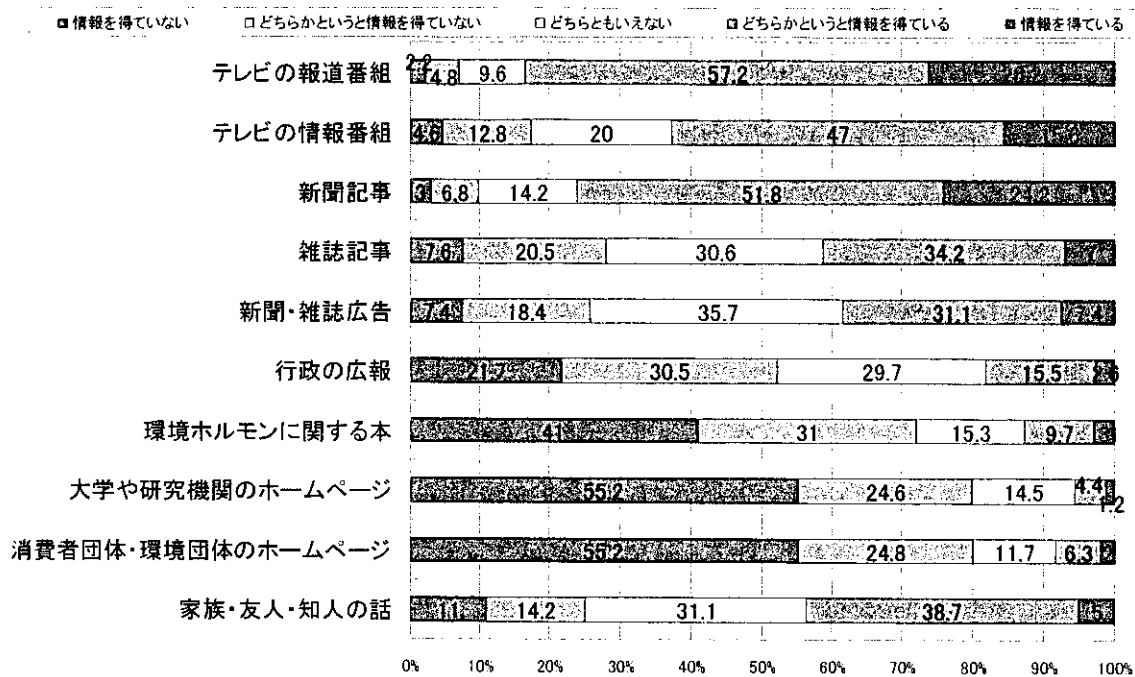 ■情報を得ていない □どちらかというと情報を得ていない □どちらともいえない □どちらかというと情報を得ている ■情報を得ている
テレビの報道番組 2.2 4.8 9.6 57.2
テレビの情報番組 4.6 12.8 20 47
新聞記事 3 6.8 14.2 51.8 24.2
雑誌記事 7.6 20.5 30.6 34.2 7
新聞・雑誌広告 7.4 18.4 35.7 31.1 7.4
行政の広報 21.7 30.5 29.7 15.5 2.6
環境ホルモンに関する本 41 31 15.3 9.7
大学や研究機関のホームページ 55.2 24.6 14.5 4.4 1.2
消費者団体・環境団体のホームページ 55.2 24.8 11.7 6.3 2
家族・友人・知人の話 11 14.2 31.1 38.7 5
0% 10% 20% 30% 40% 50% 60% 70% 80% 90% 100%